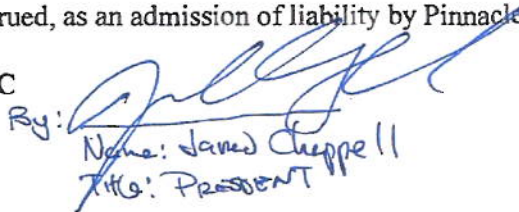 rued, as an admission of liability by Pinnacle
C
By:
Name: Jared Chappell
Title: PRESIDENT